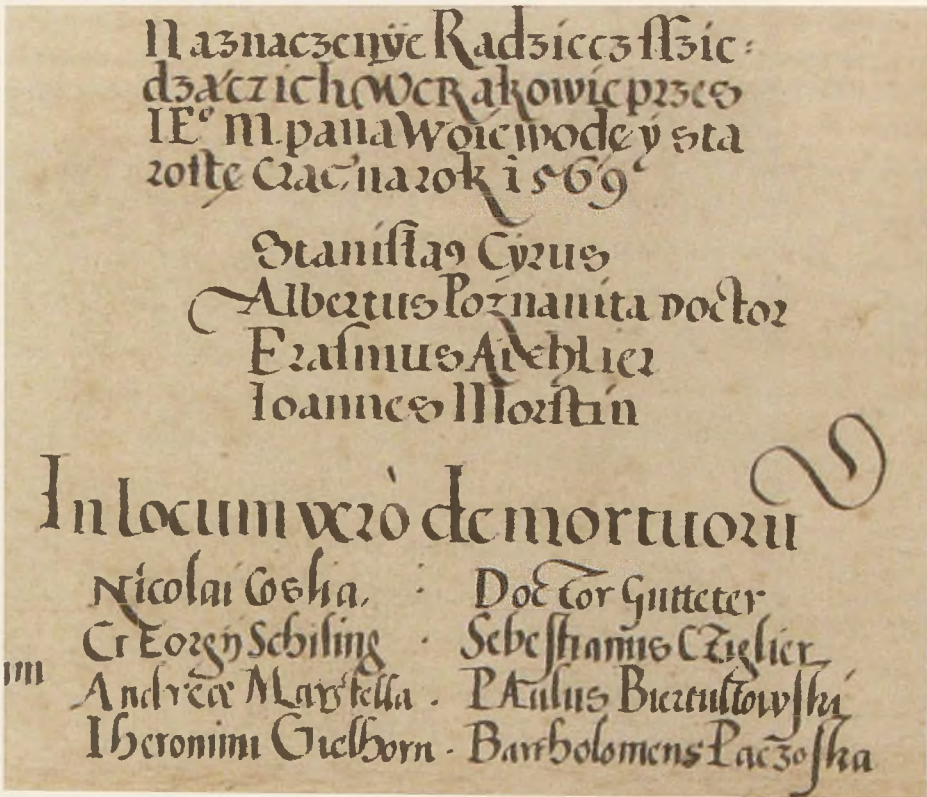 Naznaczenÿe Radziecz ſſzie⸗
dzączich w crakowie przes
IE° M. pana Woiewodę ÿ sta
roſtę Crac: na rok 1569
Staniſlaꝰ Cyrus
Albertus Poznanita Doctor
Eraſmus Aichlier
Ioannes Morſtin
In locum verò demortuorū
Nicolai Goska. · Doctor Gutteter
GEorgij Schiling · Sebeſtianus CZiglier
um
Andreæ Marſtella · PAulus Biertultowſki
Iheronimi Gielhorn · Bartholomeus Paczoſka